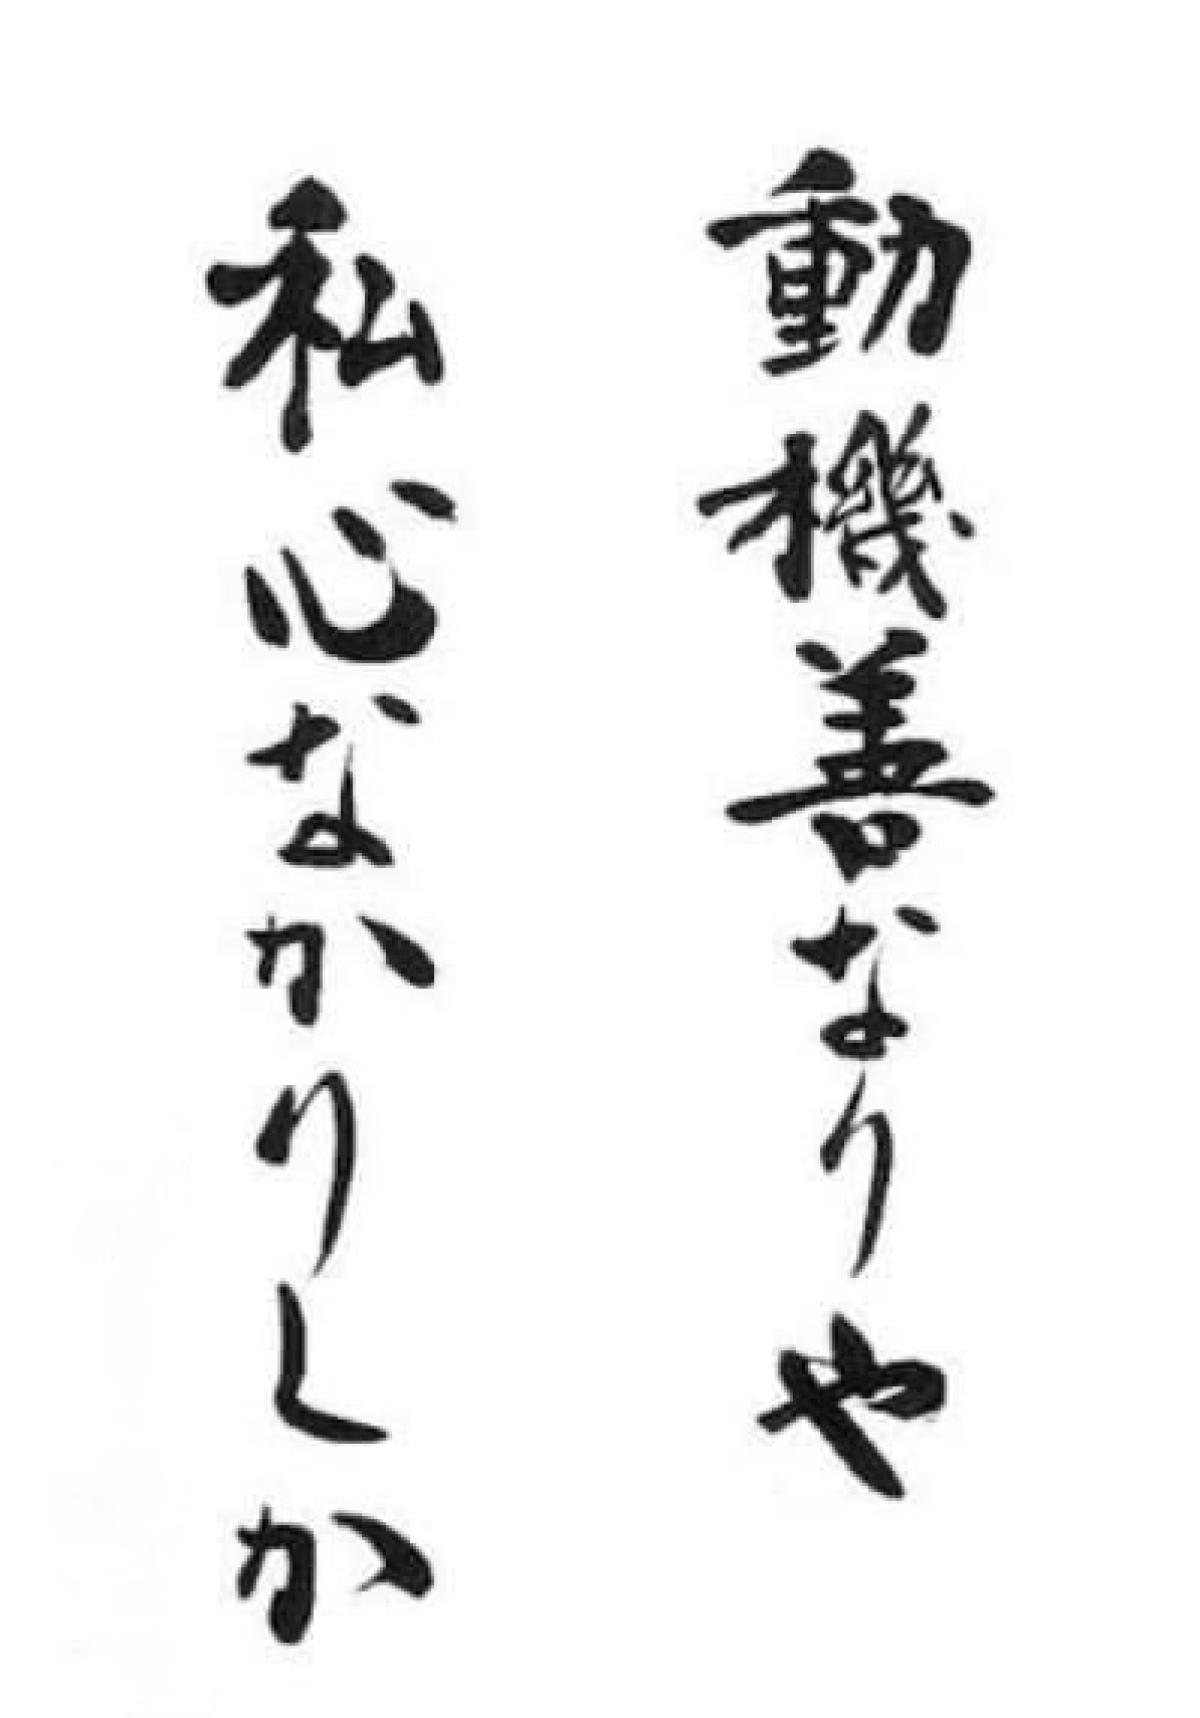 動機善なりや
私心なかりしか